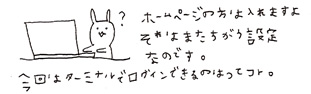 ?
ホームページの方は入れますよ
それはまたちがう設定
なのです。
今回はターミナルでログインできるのはってコト。